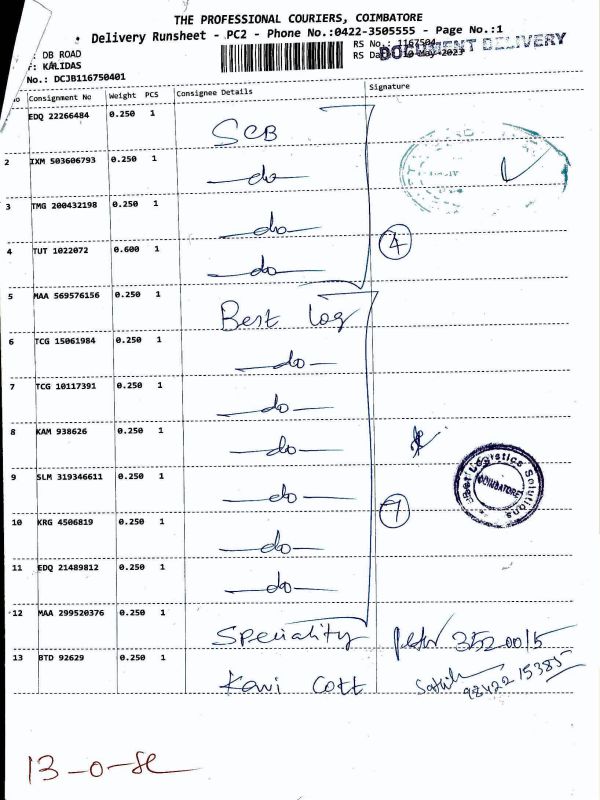 THE PROFESSIONAL COURIERS, COIMBATORE
Delivery Runsheet - PC2 - Phone No.:0422-3505555 - Page No.:1
: DB ROAD RS No.: 1167504
: KALIDAS RS Da : 10-May-2023
No.: DCJB116750401
DOCUMENT DELIVERY
No Consignment No Weight PCS Consignee Details Signature
EDQ 22266484 0.250 1 SCB
2 IXM 503606793 0.250 1 —do—
3 TMG 200432198 0.250 1 —do—
4 TUT 1022072 0.600 1 —do— 4
5 MAA 569576156 0.250 1 Best log
6 TCG 15061984 0.250 1 —do—
7 TCG 10117391 0.250 1 —do—
8 KAM 938626 0.250 1 —do—
9 SLM 319346611 0.250 1 —do— 7
10 KRG 4506819 0.250 1 —do—
11 EDQ 21489812 0.250 1 —do—
12 MAA 299520376 0.250 1 Speciality 3520015
13 BTD 92629 0.250 1 Kavi Cott 98422 15385
Logistics Solutions
COIMBATORE